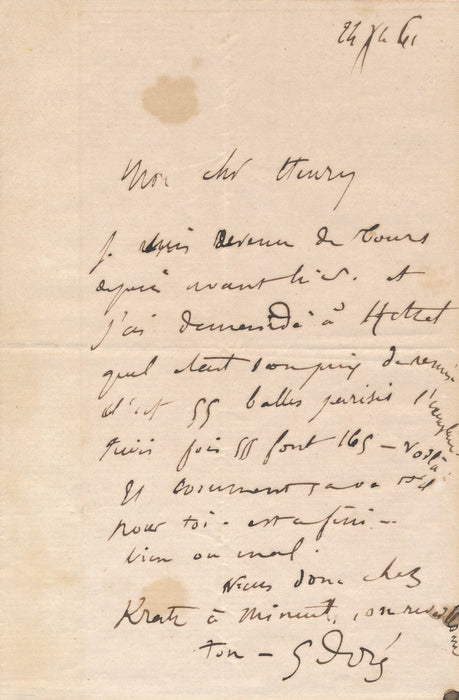 Mon cher Henry
Je suis revenu de Tours
depuis avant hier. et
j'ai demandé à Hetzel
quel était son prix de remise
c'est 55 balles parisis l'exemplaire
trois fois 55 font 165 – voilà
Et comment ça va
pour toi. est-ce fini –
bien ou mal.
Viens donc chez
Kratz à minuit, on
ton – G Doré